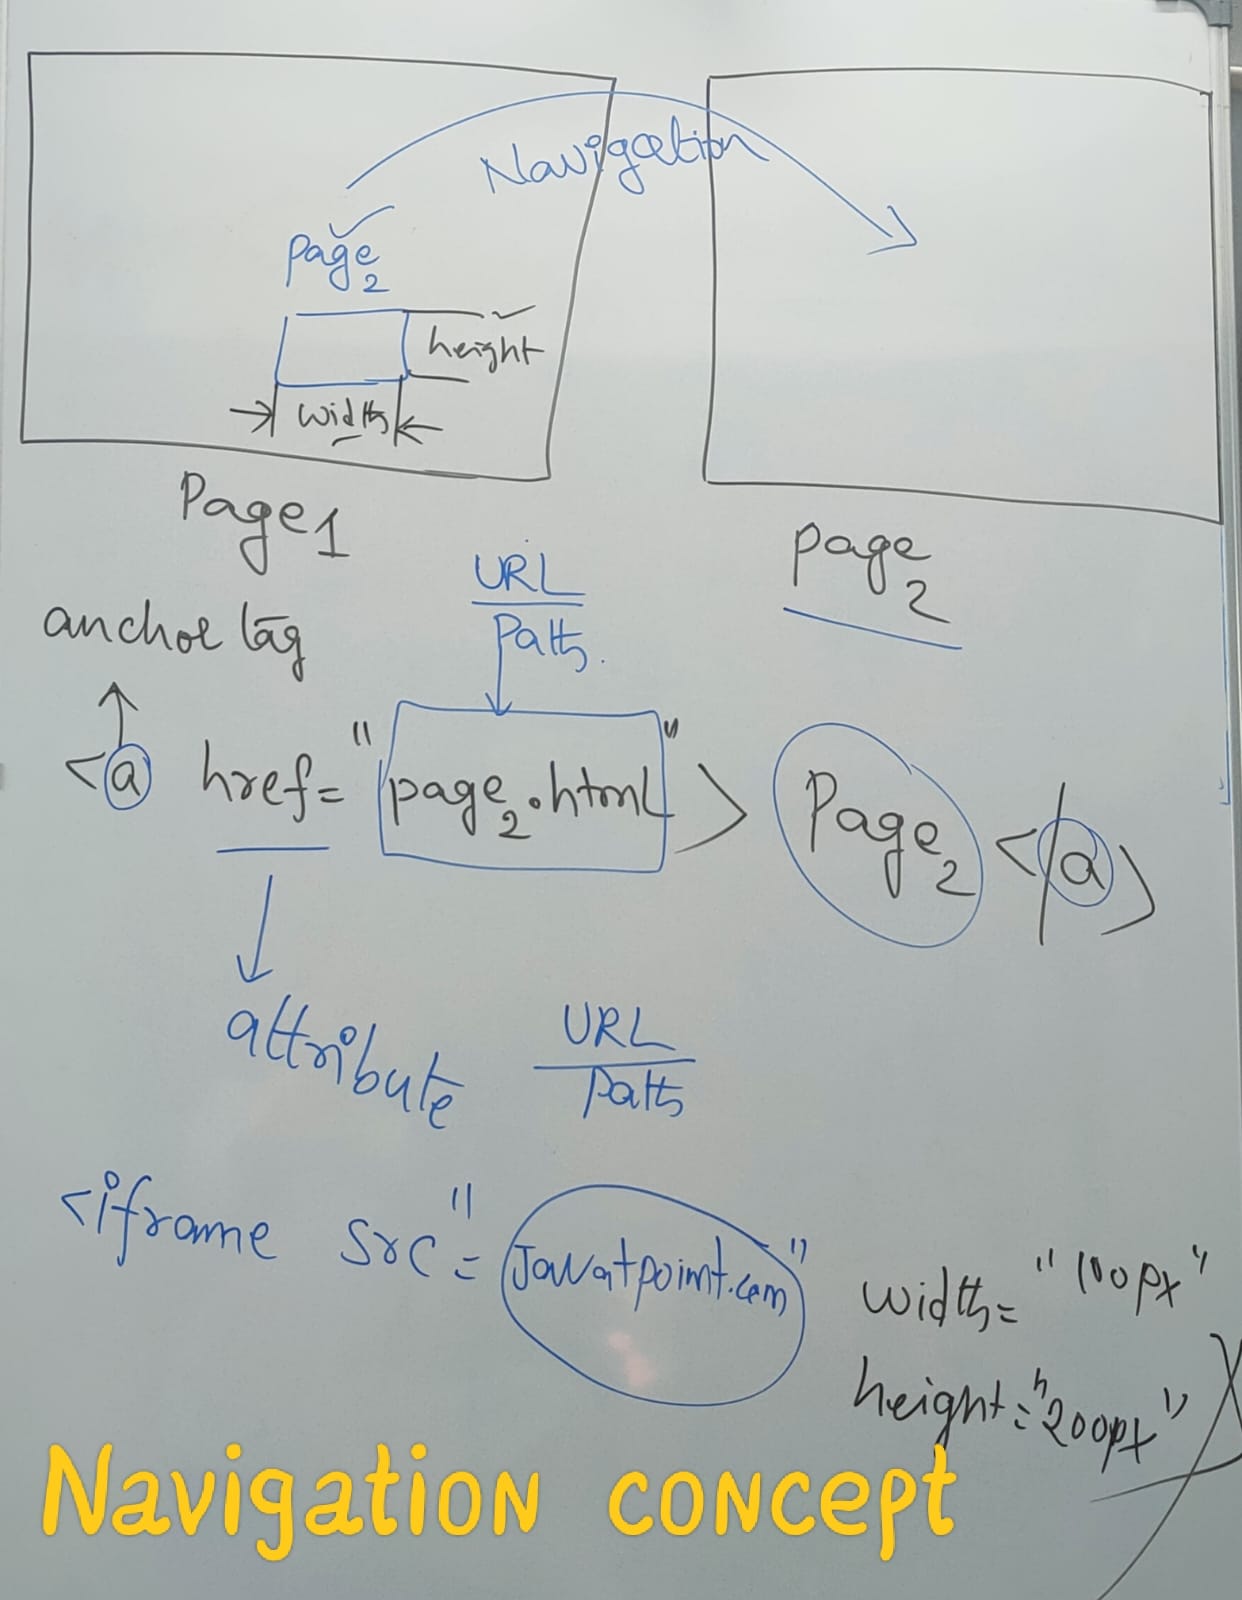 Navigation
Page2
height
width
Page1
page2
URL
Path.
anchor tag
<a href="page2.html"> Page2 </a>
attribute
URL
Path
<iframe src="Javatpoint.com" width="100px"
height="200px"
Navigation concept